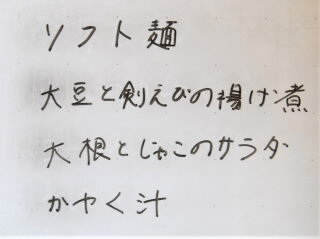 ソフト麺
大豆と剣えびの揚げ煮
大根とじゃこのサラダ
かやく汁